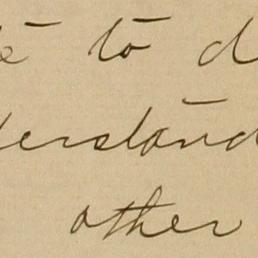 to d
derstand
other